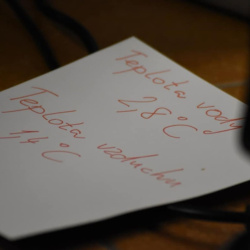 Teplota vody
2,8°C
Teplota vzduchu
1,4 °C